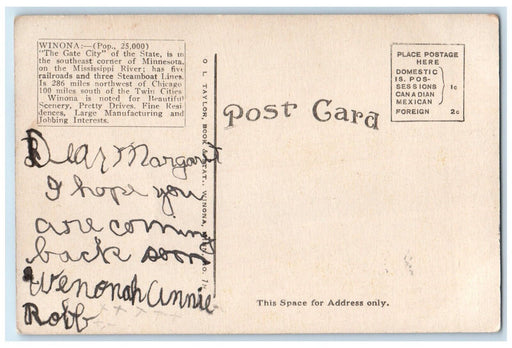 WINONA:—(Pop., 25,000)
"The Gate City" of the State, is in
the southeast corner of Minnesota,
on the Mississippi River; has five
railroads and three Steamboat Lines.
Is 286 miles northwest of Chicago
100 miles south of the Twin Cities
Winona is noted for Beautiful
Scenery, Pretty Drives, Fine Resi-
dences, Large Manufacturing and
Jobbing Interests.
Dear Margaret
I hope you
are coming
back soon
Wenonah Annie
Robb
O L TAYLOR, BOOK & STAT., WINONA,
Post Card
PLACE POSTAGE
HERE
DOMESTIC
IS. POS-
SESSIONS
CANADIAN
MEXICAN
1c
FOREIGN 2c
This Space for Address only.